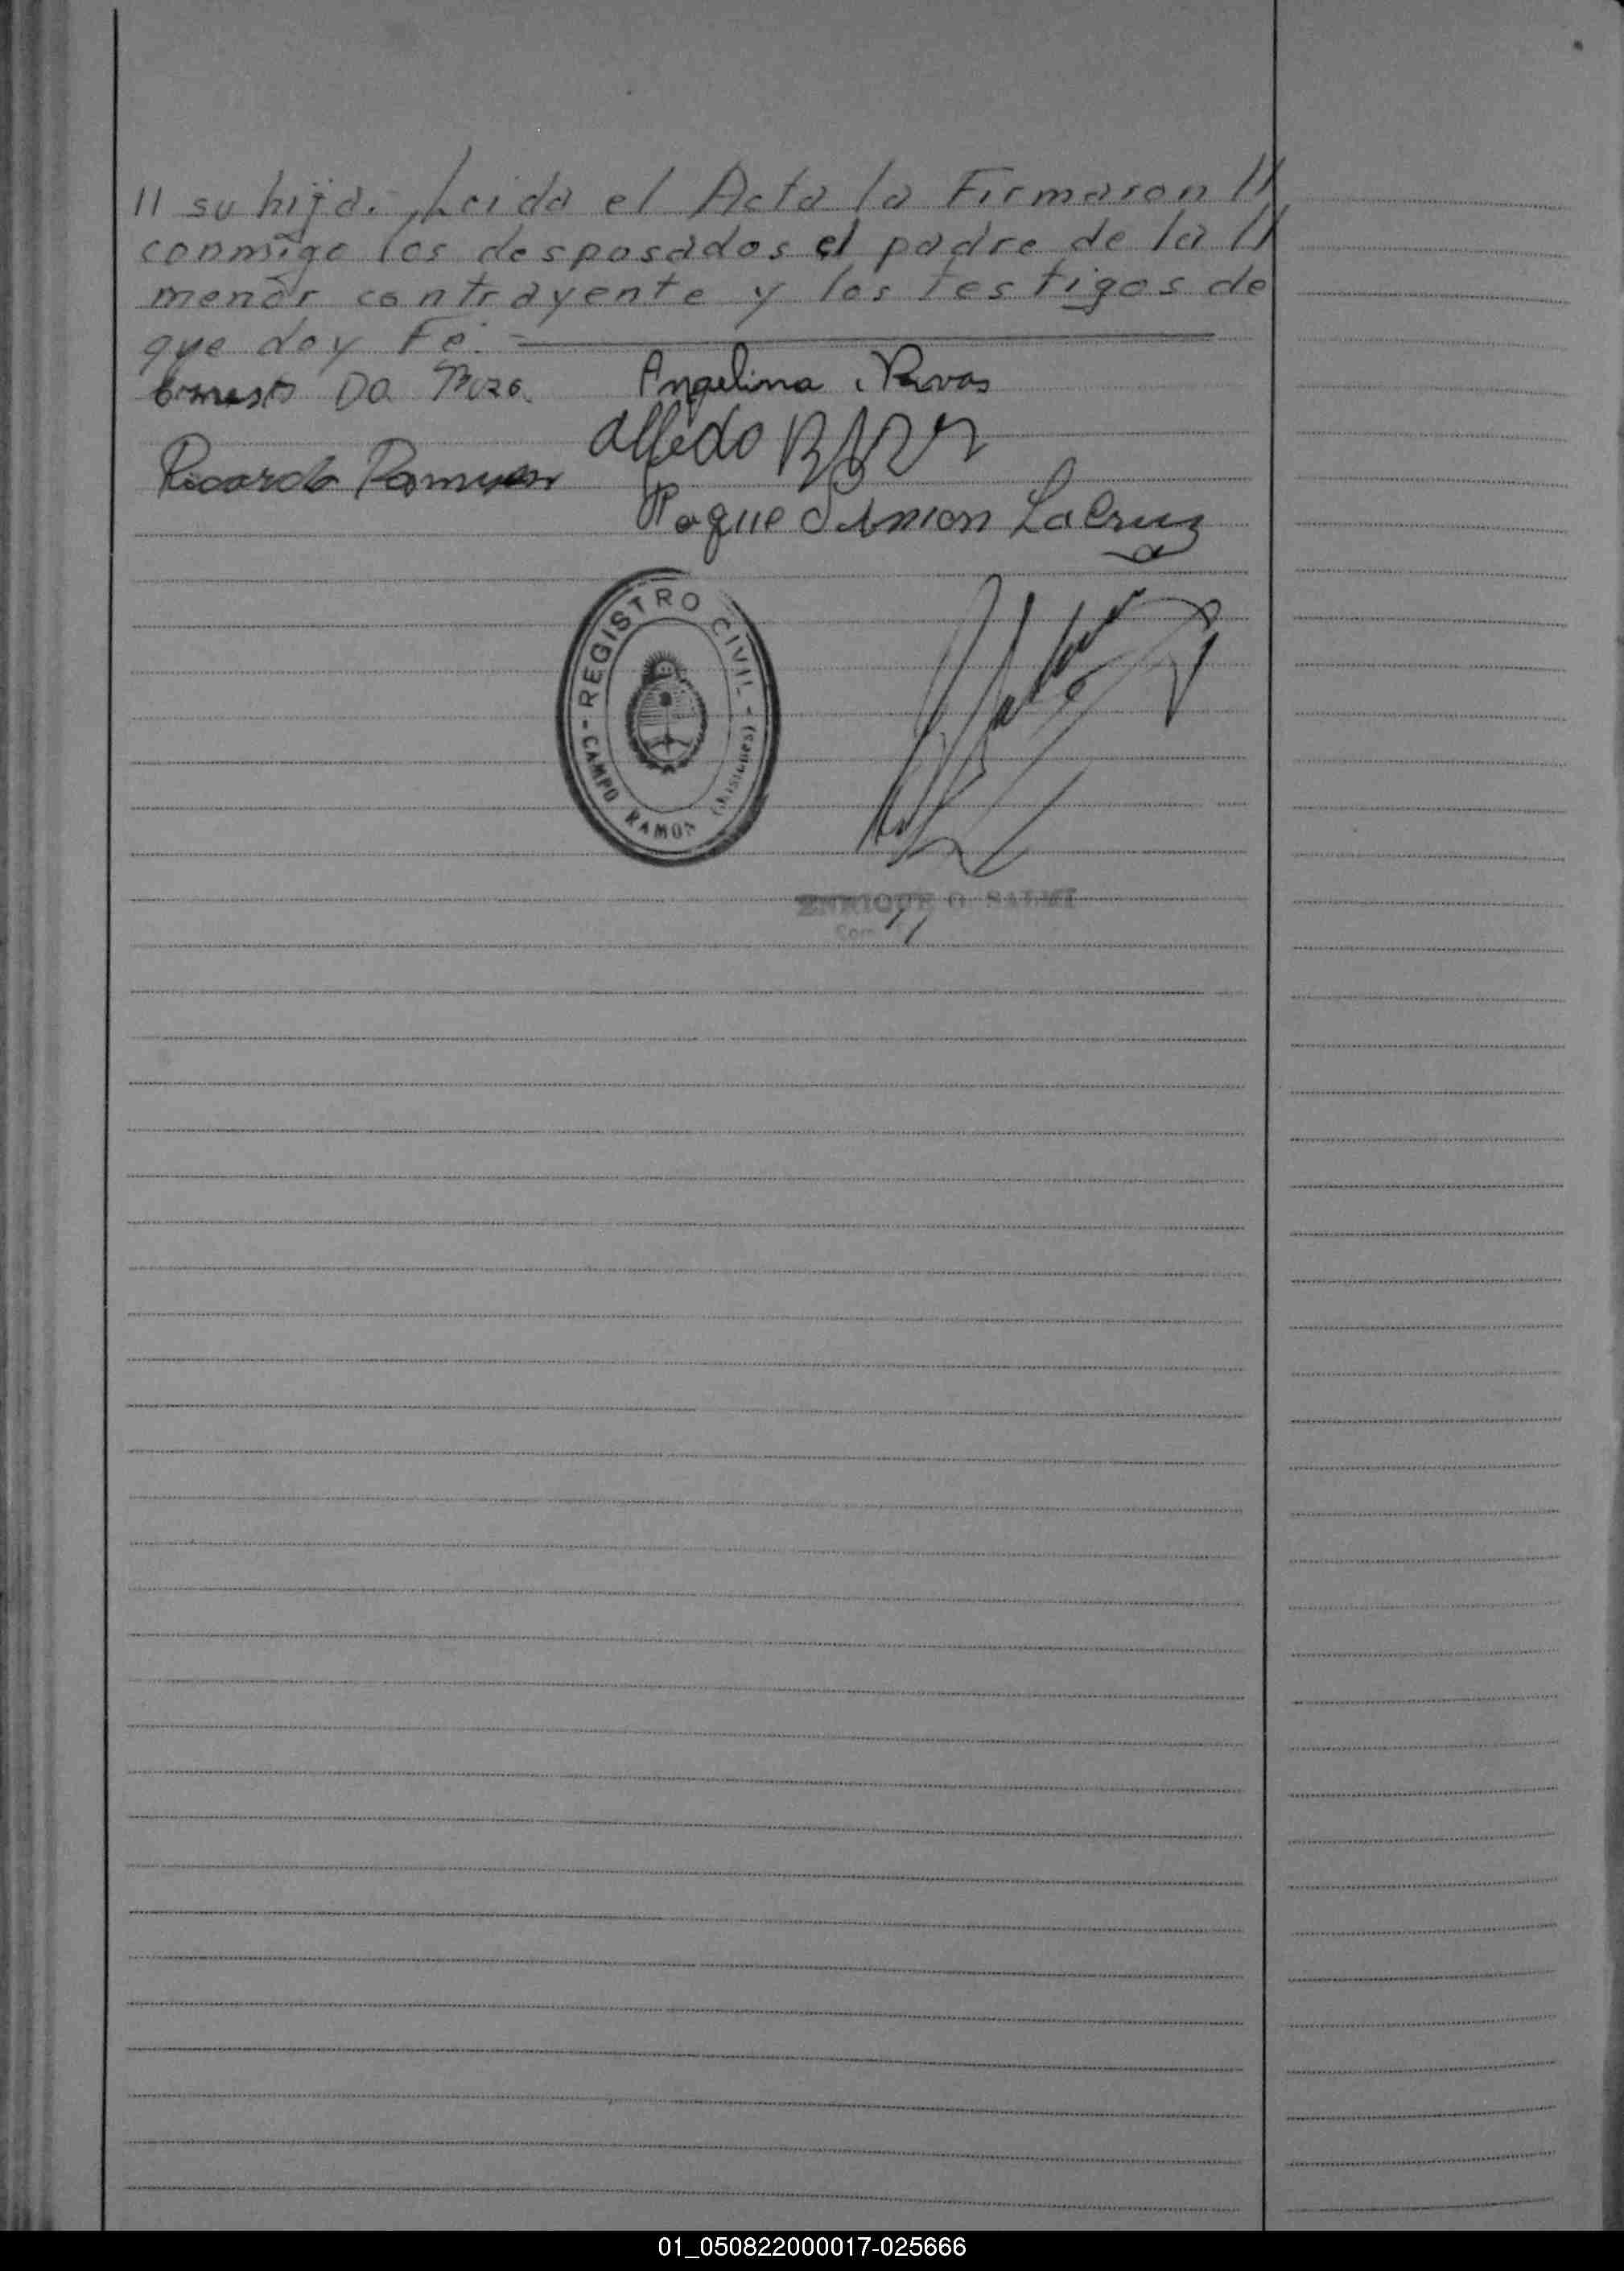 // su hija. Leida el Acta la Firmaron //
conmigo los desposados el padre de la //
menor contrayente y los testigos de
que doy Fé.
Ernesto Da Roza. Angelina Rivas
Alfredo
Ricardo
Roque La Cruz
REGISTRO CIVIL
CAMPO RAMON (Misiones)
ENRIQUE O.
01_050822000017-025666